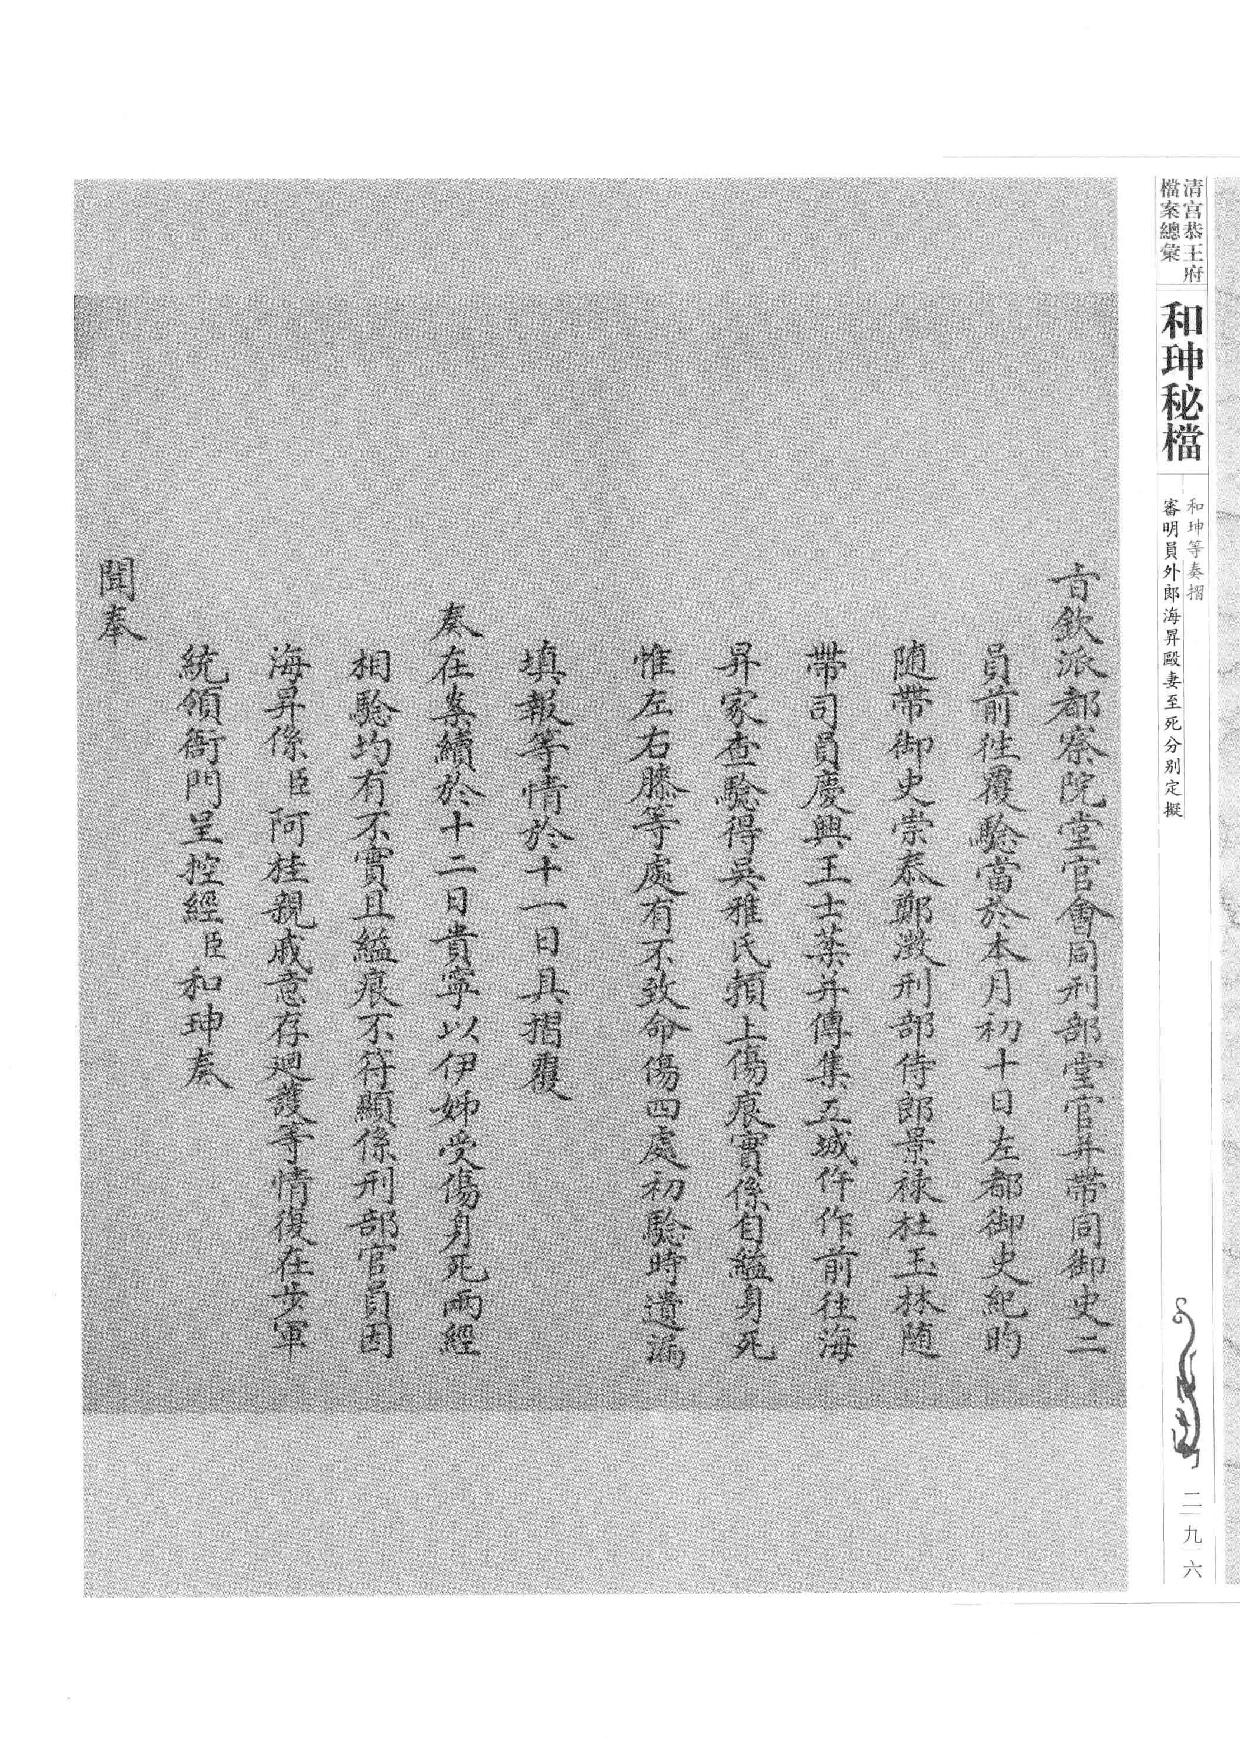 清宮恭王府
檔案總彙
和珅秘檔
和珅等奏摺
審明員外郎海昇毆妻至死分別定擬
二九六
旨欽派都察院堂官會同刑部堂官并帶同御史二
員前往覆驗當於本月初十日左都御史紀昀
随帶御史崇泰鄭澂刑部侍郎景祿杜玉林随
帶司員慶興王士棻并傳集五城仵作前往海
昇家查驗得吳雅氏頦上傷痕實係自縊身死
惟左右膝等處有不致命傷四處初驗時遺漏
填報等情於十一日具摺覆
奏在案續於十二日貴寧以伊姊受傷身死兩經
相驗均有不實且縊痕不符顯係刑部官員因
海昇係臣阿桂親戚意存迴護等情復在步軍
統領衙門呈控經臣和珅奏
聞奉